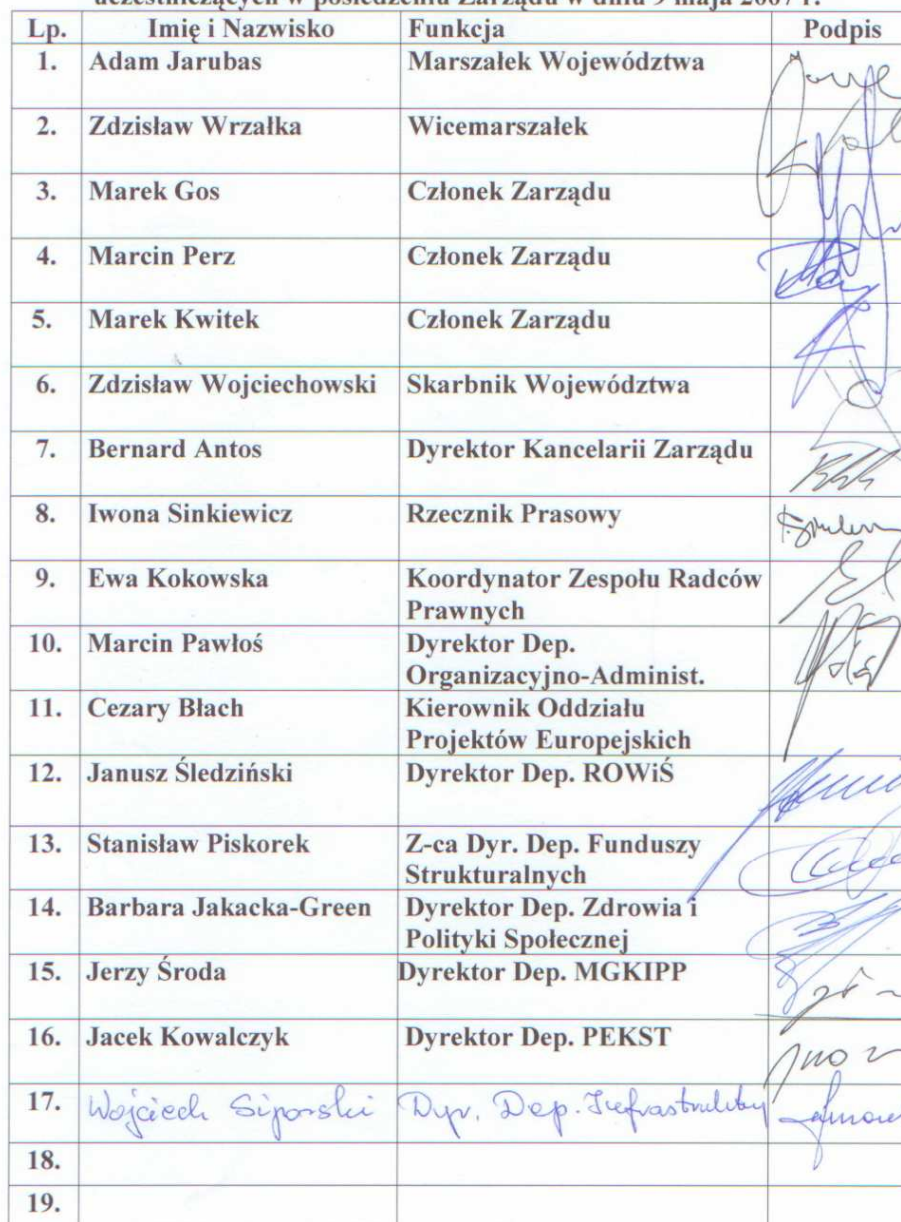 uczestniczących w posiedzeniu Zarządu w dniu 9 maja 2007 r.
Lp. Imię i Nazwisko Funkcja Podpis
1. Adam Jarubas Marszałek Województwa
2. Zdzisław Wrzałka Wicemarszałek
3. Marek Gos Członek Zarządu
4. Marcin Perz Członek Zarządu
5. Marek Kwitek Członek Zarządu
6. Zdzisław Wojciechowski Skarbnik Województwa
7. Bernard Antos Dyrektor Kancelarii Zarządu
8. Iwona Sinkiewicz Rzecznik Prasowy
9. Ewa Kokowska Koordynator Zespołu Radców
Prawnych
10. Marcin Pawłoś Dyrektor Dep.
Organizacyjno-Administ.
11. Cezary Błach Kierownik Oddziału
Projektów Europejskich
12. Janusz Śledziński Dyrektor Dep. ROWiŚ
13. Stanisław Piskorek Z-ca Dyr. Dep. Funduszy
Strukturalnych
14. Barbara Jakacka-Green Dyrektor Dep. Zdrowia i
Polityki Społecznej
15. Jerzy Środa Dyrektor Dep. MGKIPP
16. Jacek Kowalczyk Dyrektor Dep. PEKST
17. Wojciech Siporski Dyr. Dep. Infrastruktury
18.
19.